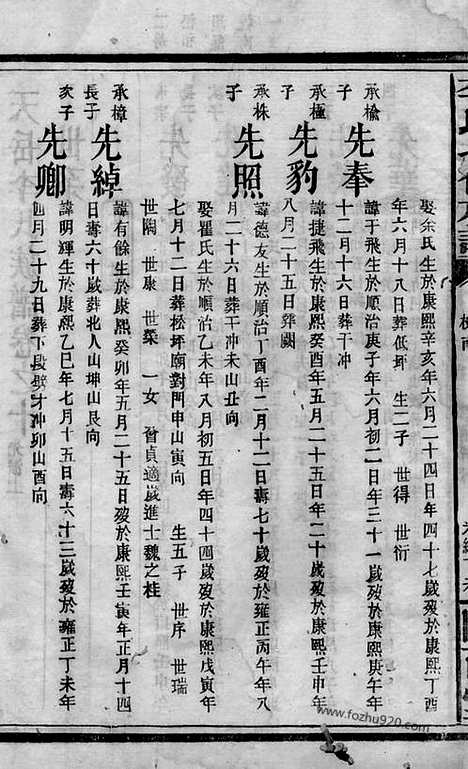 娶余氏生於康熙辛亥年六月二十四日年四十七歲歿於康熙丁酉
年六月十八日葬低坪 生二子 世得 世衍
承楡子 先奉
諱于飛生於順治庚子年六月初二日年三十一歲歿於康熙庚午年
十二月十六日葬干冲
承極子 先豹
諱捷飛生於康熙癸酉年五月二十五日年二十歲歿於康熙壬申年
八月二十五日葬闕
承株子 先照
諱德友生於順治丁酉年二月十二日壽七十歲歿於雍正丙午年八
月二十六日葬干冲未山丑向
娶瞿氏生於順治乙未年八月初五日年四十四歲歿於康熙戊寅年
七月十二日葬松坪廟對門申山寅向 生五子 世序 世瑞
世陶 世康 世榮 一女 晉貞適歲進士魏之桂
承樟長子 先綽
諱有餘生於康熙癸卯年五月二十五日歿於康熙壬寅年正月十四
日壽六十歲葬北人山坤山艮向
次子 先卿
諱明輝生於康熙乙巳年七月十五日壽六十三歲歿於雍正丁未年
四月二十九日葬下段劈才冲卯山酉向
www.fozhu920.com